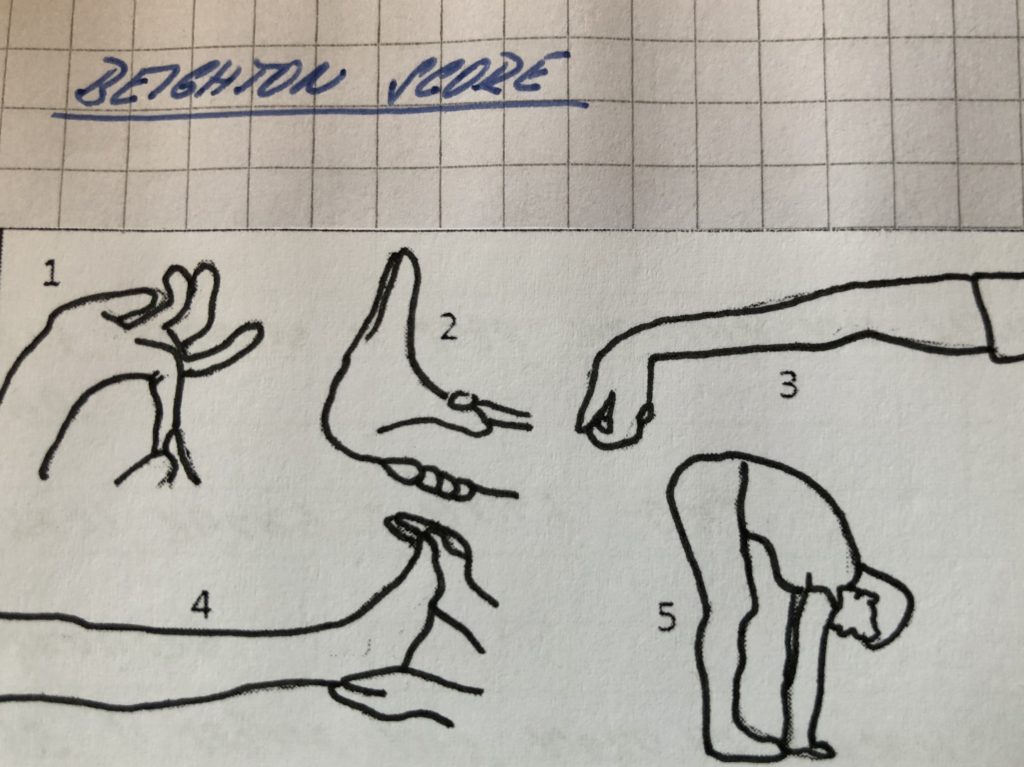 BEIGHTON SCORE
1
2
3
4
5